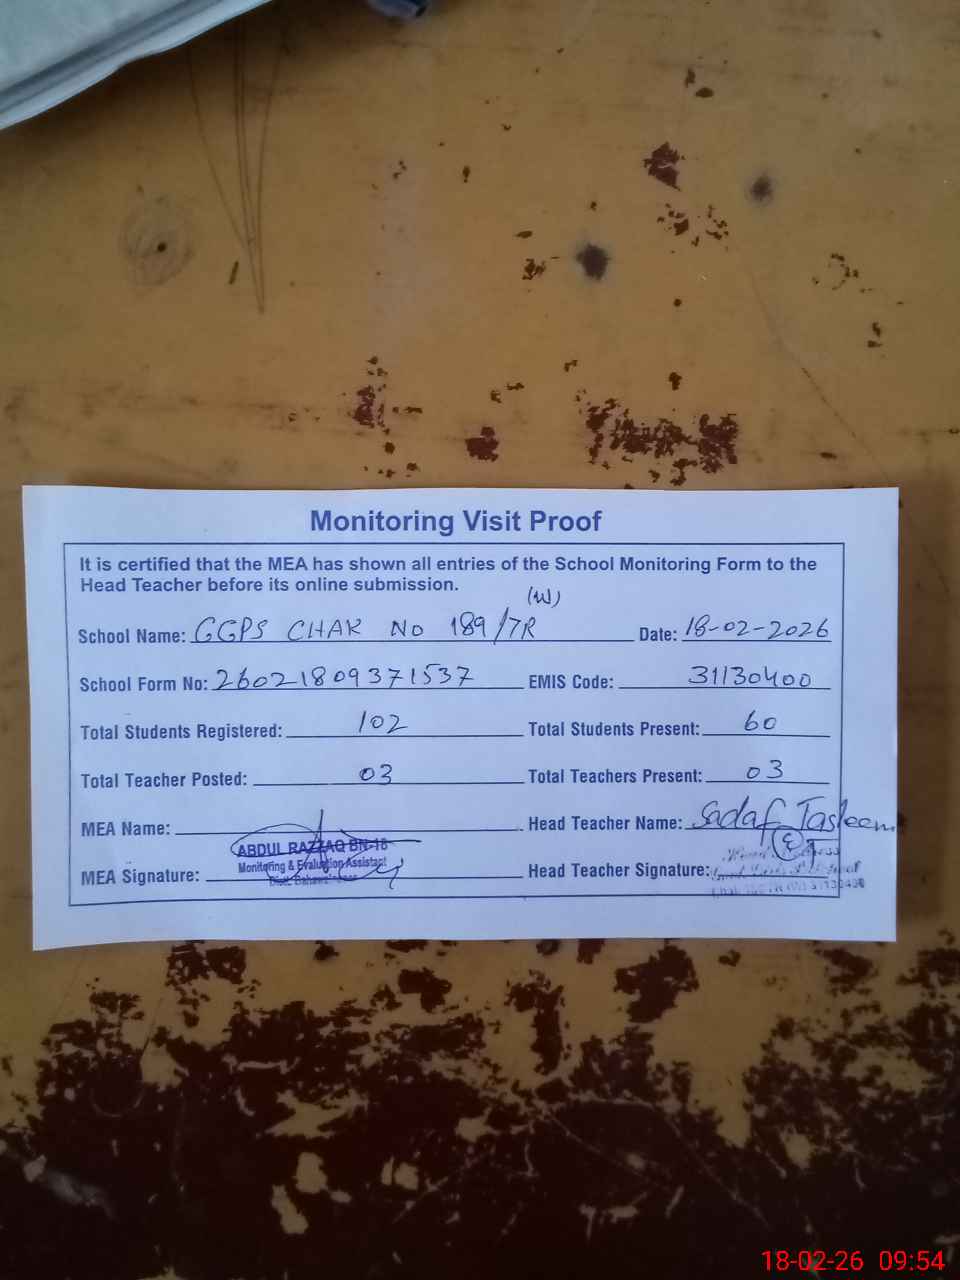 Monitoring Visit Proof
It is certified that the MEA has shown all entries of the School Monitoring Form to the
Head Teacher before its online submission.
School Name: GGPS CHAK NO 189/7R (W) Date: 18-02-2026
School Form No: 26021809371537 EMIS Code: 31130400
Total Students Registered: 102 Total Students Present: 60
Total Teacher Posted: 03 Total Teachers Present: 03
MEA Name: Head Teacher Name: Sadaf Tasleem
ABDUL RAZZAQ BN-18
Monitoring & Evaluation Assistant
MEA Signature: Head Teacher Signature:
18-02-26 09:54